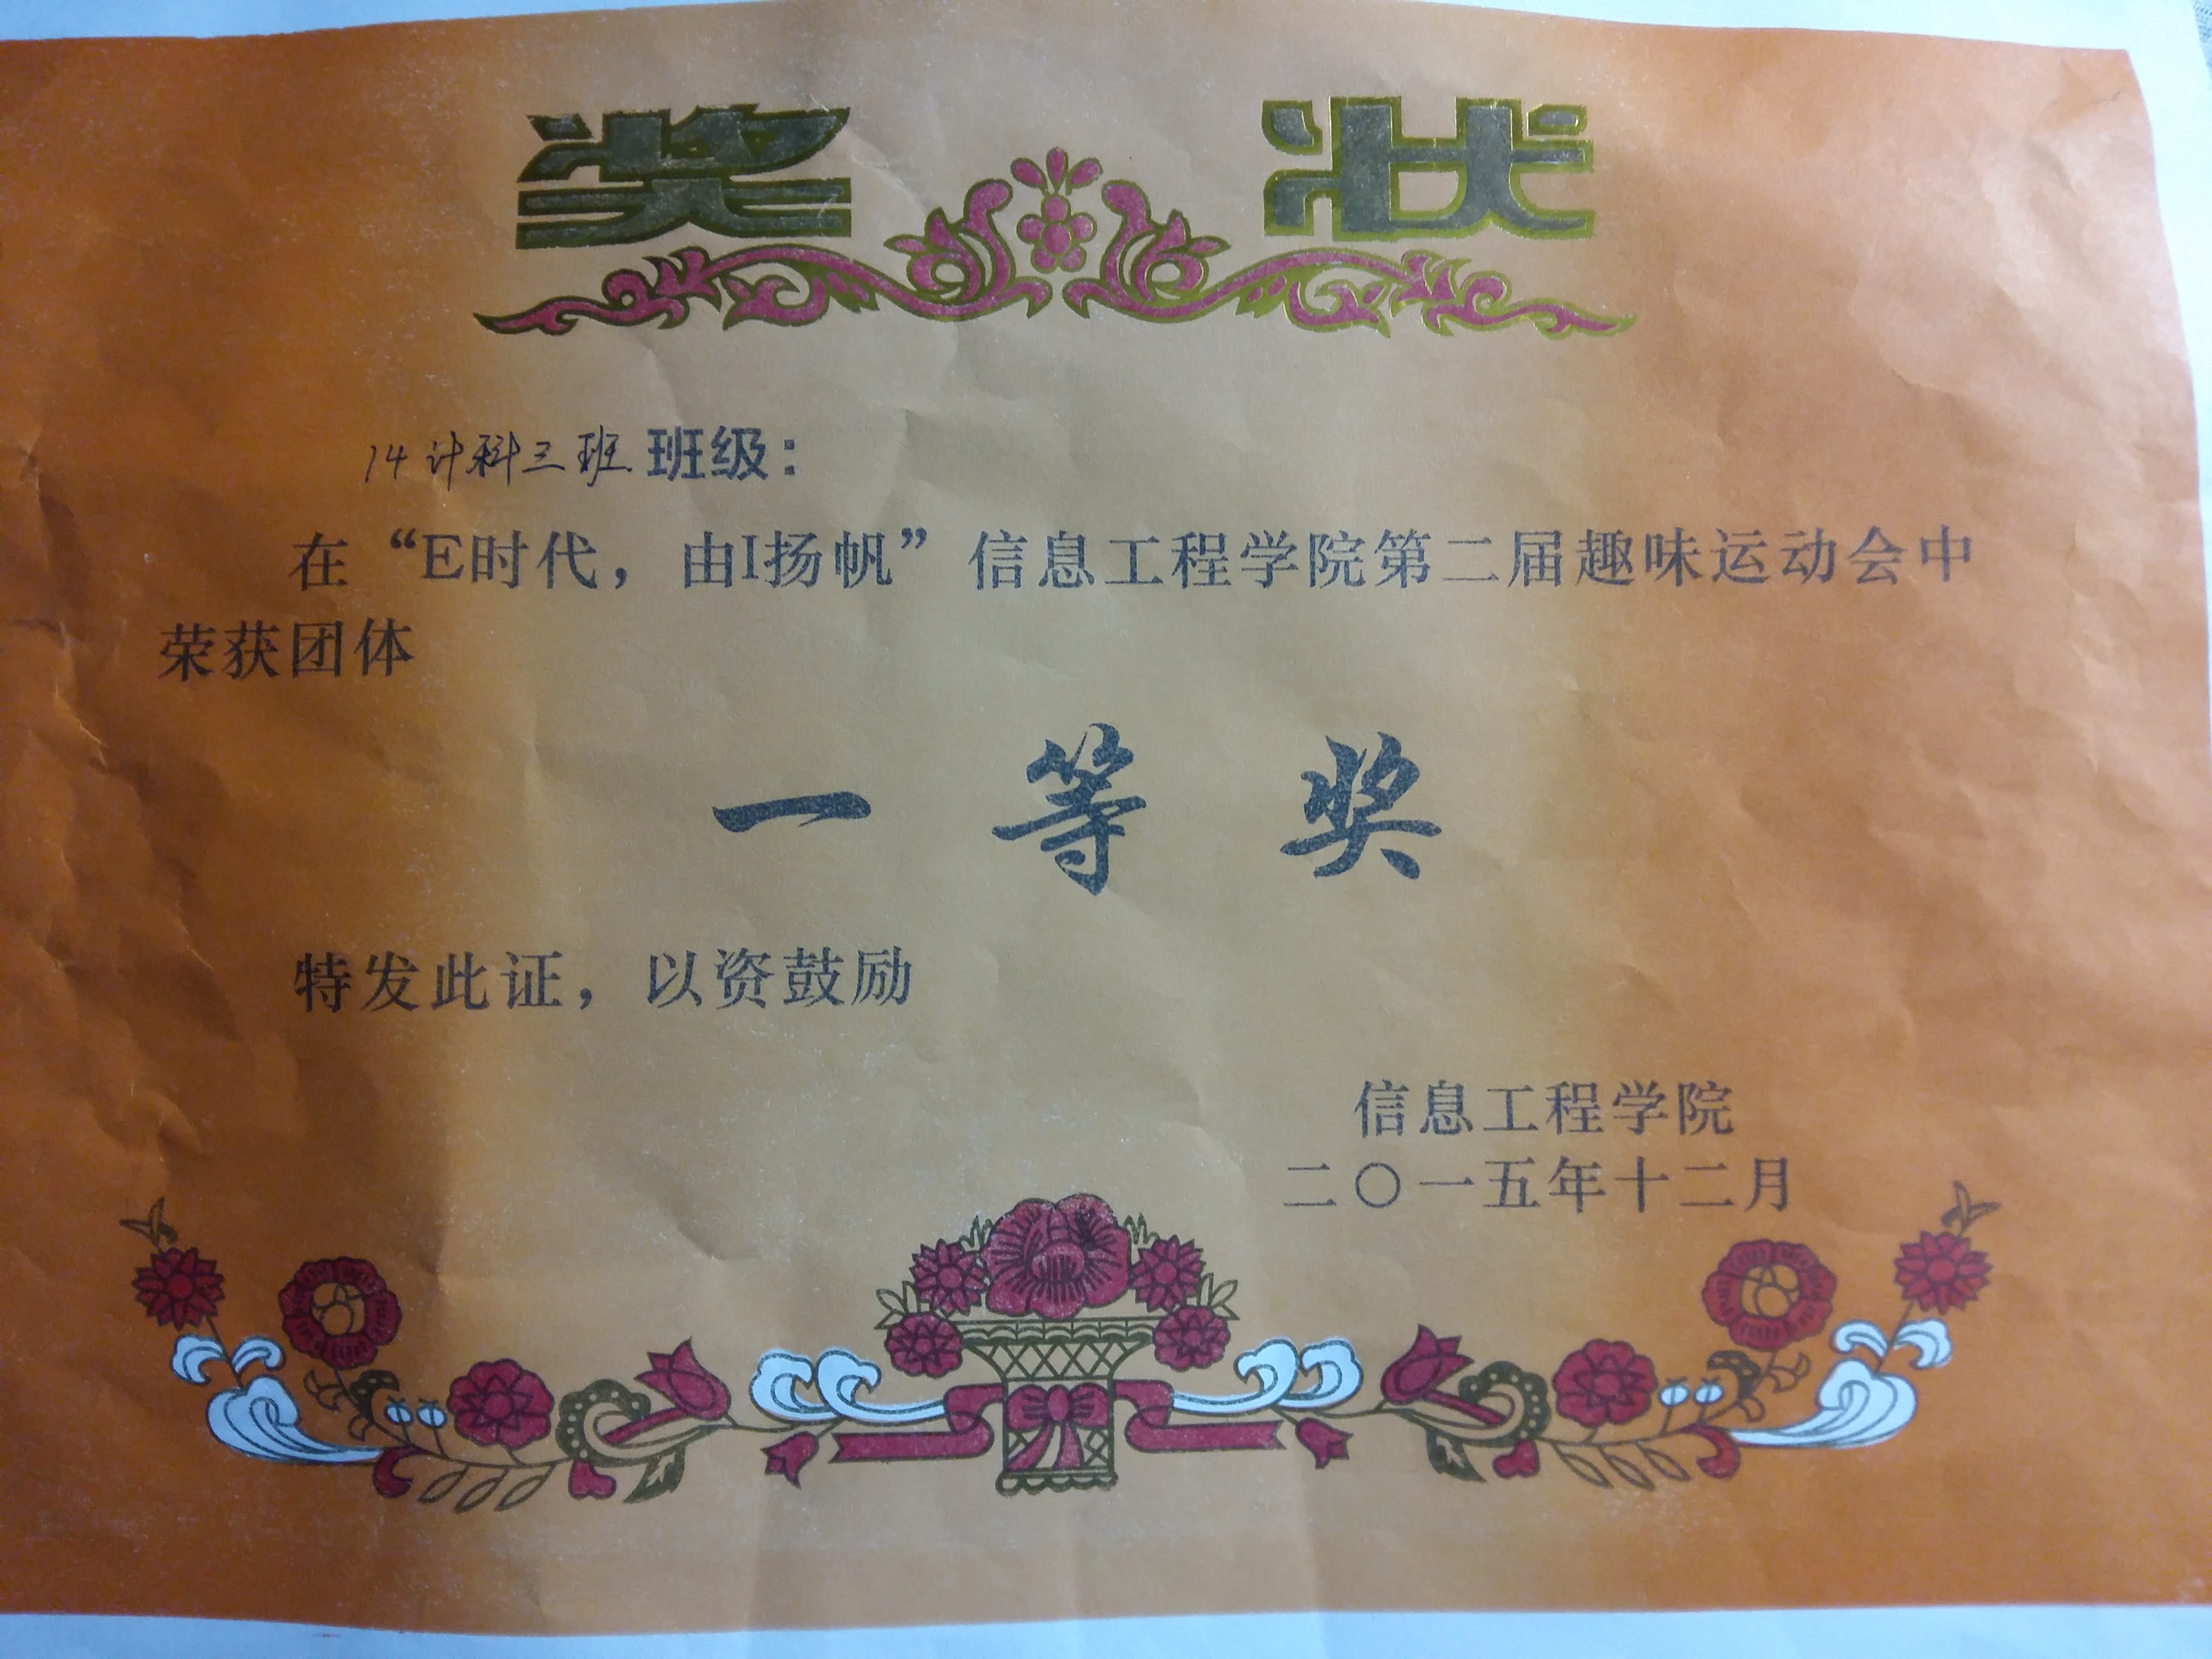 奖状
14计科三班班级：
在“E时代，由I扬帆”信息工程学院第二届趣味运动会中
荣获团体
一等奖
特发此证，以资鼓励
信息工程学院
二〇一五年十二月